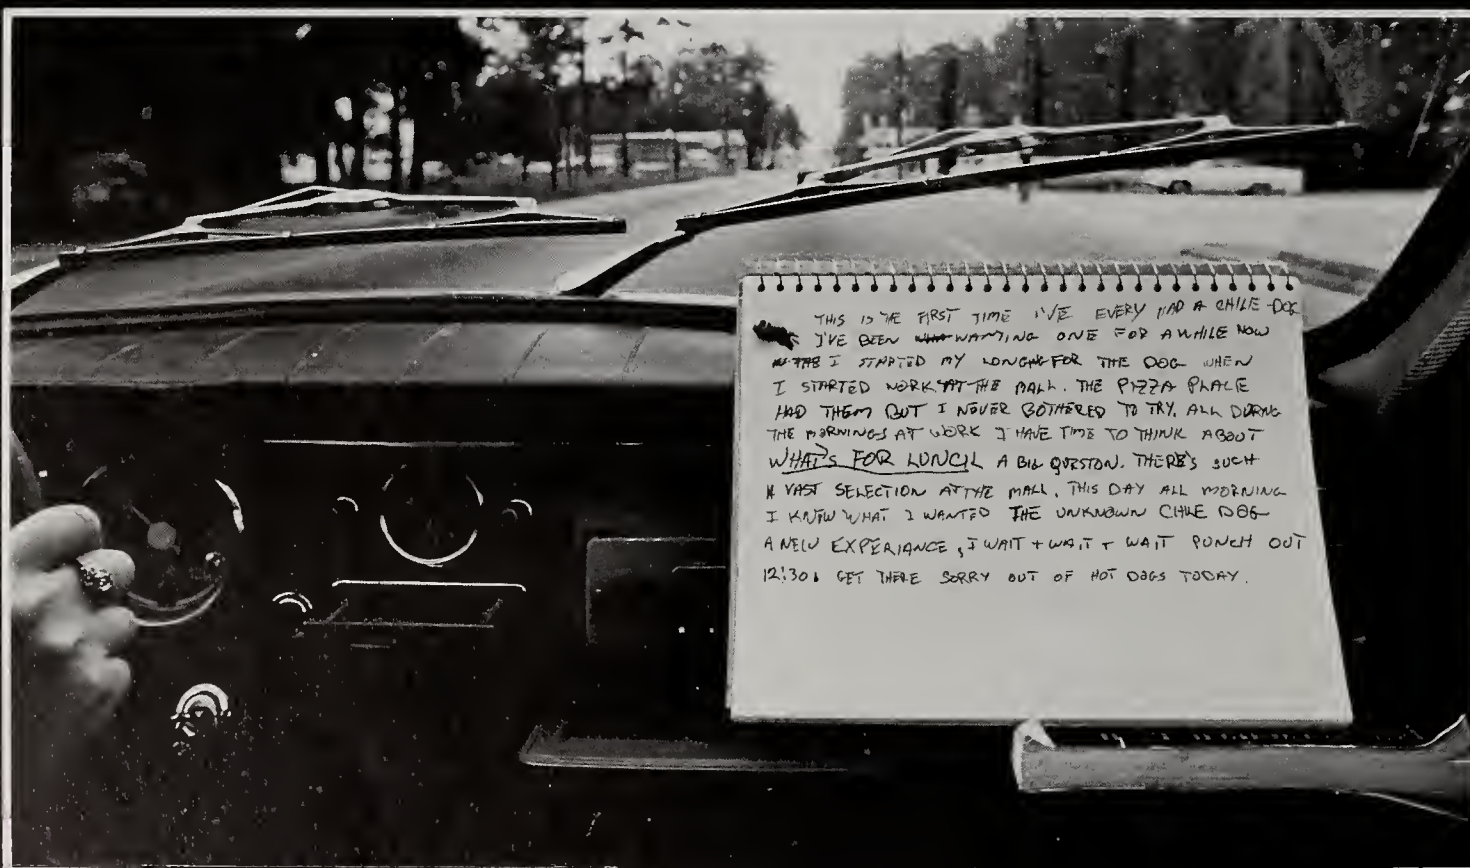 THIS IS THE FIRST TIME I'VE EVERY HAD A CHILE-DOG
I'VE BEEN WANTING ONE FOR A WHILE NOW
I STARTED MY LONGING FOR THE DOG WHEN
I STARTED WORK AT THE MALL. THE PIZZA PLACE
HAD THEM BUT I NEVER BOTHERED TO TRY. ALL DURING
THE MORNINGS AT WORK I HAVE TIME TO THINK ABOUT
WHAT'S FOR LUNCH A BIG QUESTON. THERE'S SUCH
A VAST SELECTION AT THE MALL. THIS DAY ALL MORNING
I KNEW WHAT I WANTED THE UNKNOWN CHILE DOG
A NEW EXPERIANCE, I WAIT + WAIT + WAIT PUNCH OUT
12:30. GET THERE SORRY OUT OF HOT DOGS TODAY.